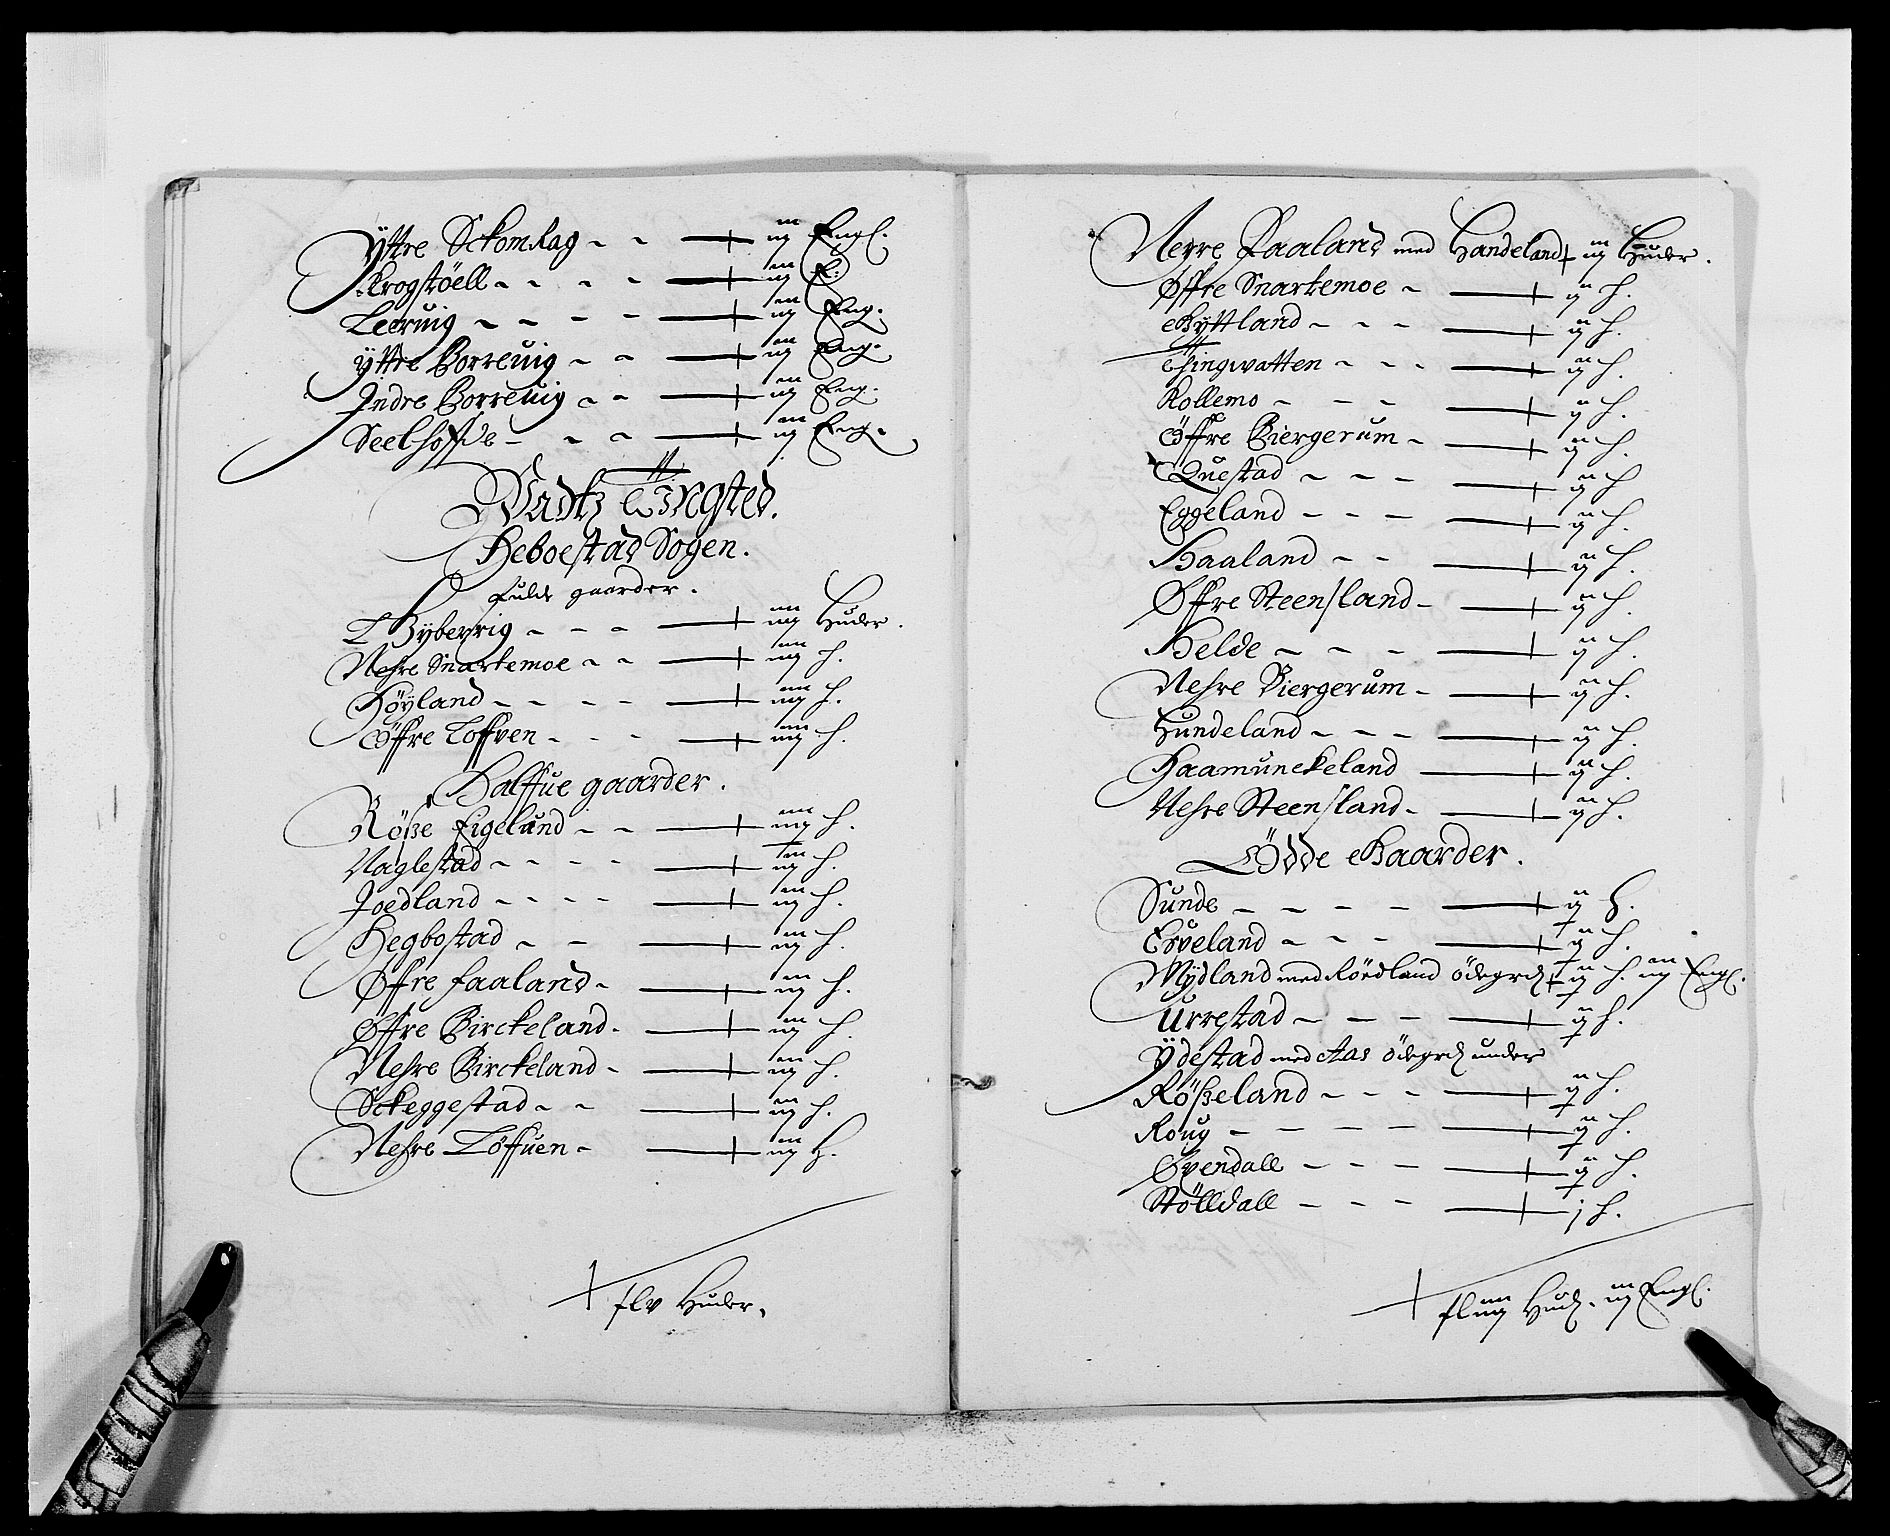 Yttre Sckomdag - - — iij Engl.
Krogstöell - - - - — iij E:
Leervig - - - - — iij Eng.
Yttre Borrevig - - — iij Eng.
Indre Borrevig - - — iij Eng.
Seelhoffde - - - — iij Eng.
Tingsted.
Heboestad Sogen.
Fulde gaarder.
Byberrig - - - — iiij Huder.
Nehre Snartemoe - - — iiij h.
Höyland - - - - — iiij h.
Øffre Löffven - - - — iiij h.
Halffue gaarder.
Röße Eigeland - - — iiij h.
Naglestad - - - - — h.
Joedland - - - - — iij h.
Hegbostad - - — iij h.
Øffre Faaland - — iij h.
Øffre Birckeland - — iij h.
Nehre Birckeland - — iij h.
Sckeggestad - - — iij h.
Nehre Löffuen - — iij H.
flv Huder.
Nerre Faaland med Handeland iij Huder.
Øffre Snartemoe - — ij h.
Gyttland - - - — ij h.
Tingvatten - - - — ij h.
Kollemo - - - — ij h.
Øffre Biergerum - — ij h.
Questad - - - — ij h
Eggeland - - - — ij h.
Haaland - - — ij h.
Øffre Steensland - — ij h.
Helde - - - — ij h.
Nehre Biergerum - — ij h.
Hundeland - - - — ij h.
Haamunekeland — ij h.
Nehre Steensland - — ij h.
Ödde Gaarder.
Sunde - - - - — ij h.
Erveland - - - — h.
Mÿdland med Röedland ödegrd h. iij Engl.
Urrestad - - - — h.
Ydestad med Aas ödegrd under
Rößeland - - - — h.
Roug - - - - — h.
Øvendall - - - — h.
Stölldall - - - — j h.
Hud. iij Engl.